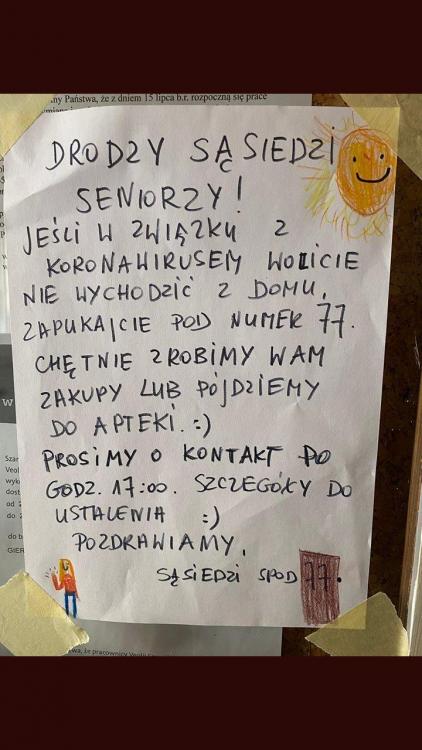 ny Państwa, że z dniem 15 lipca b.r. rozpoczną się prace
DRODZY SĄSIEDZI
SENIORZY!
JEŚLI W ZWIĄZKU Z
KORONAWIRUSEM WOLICIE
NIE WYCHODZIĆ Z DOMU,
ZAPUKAJCIE POD NUMER 77.
CHĘTNIE ZROBIMY WAM
ZAKUPY LUB PÓJDZIEMY
DO APTEKI. :)
PROSIMY O KONTAKT PO
GODZ. 17:00. SZCZEGÓŁY DO
USTALENIA :)
POZDRAWIAMY,
SĄSIEDZI SPOD 77.